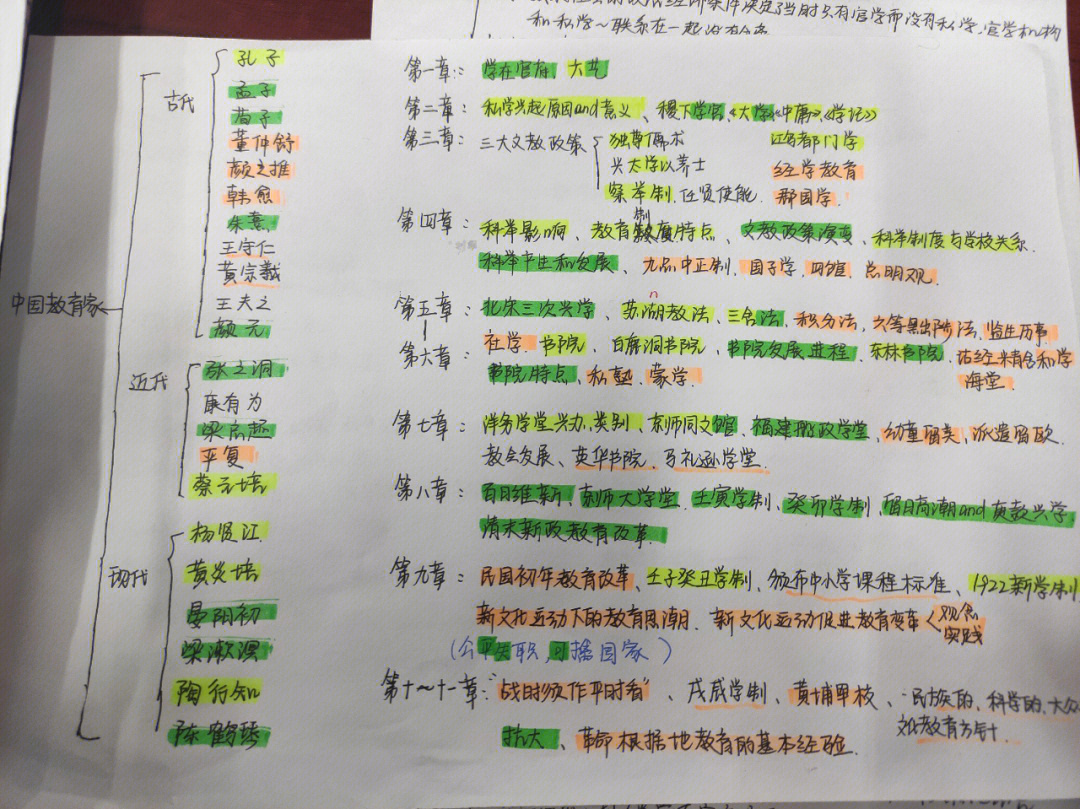 和私学~联系在一起没有分离
中国教育家
古代
孔子
孟子
荀子
董仲舒
颜之推
韩愈
朱熹
王守仁
黄宗羲
王夫之
颜元
近代
张之洞
康有为
梁启超
严复
蔡元培
现代
杨贤江
黄炎培
晏阳初
梁漱溟
陶行知
陈鹤琴
第一章: 学在官府、六艺
第二章: 私学兴起原因and意义、稷下学宫、《大学》《中庸》、《学记》
第三章: 三大文教政策
独尊儒术 鸿都门学
兴太学以养士 经学教育
察举制、任贤使能 郡国学.
第四章: 科举影响、教育制度特点、文教政策演变、科举制度与学校关系.
科举产生和发展、九品中正制、国子学、四馆、总明观.
第五章: 北宋三次兴学、苏湖教法、三舍法、积分法、六等黜陟法、监生历事
社学、书院、白鹿洞书院、书院发展进程、东林书院、诂经精舍和学海堂.
第六章
书院特点、私塾、蒙学.
第七章: 洋务学堂兴办、类别、京师同文馆、福建船政学堂、幼童留美、派遣留欧.
教会发展、英华书院、马礼逊学堂.
第八章: 百日维新、京师大学堂、壬寅学制、癸卯学制、留日高潮and庚款兴学
清末新政教育改革.
第九章: 民国初年教育改革、壬子癸丑学制、颁布中小学课程标准、1922新学制
新文化运动下的教育思潮、新文化运动促进教育变革
观念
实践
(公平失职,可播国家)
第十~十一章: "战时须作平时看"、戊辰学制、黄埔军校、民族的、科学的、大众
文化教育方针.
抗大、革命根据地教育的基本经验.